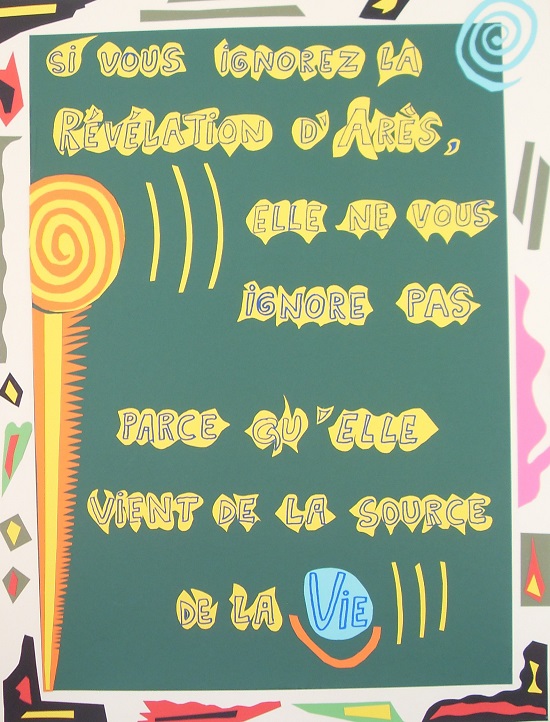 Si VOUS iGNOREZ LA
RÉVÉLATiON D'ARÈS,
ELLE NE VOUS
iGNORE PAS
PARCE QU'ELLE
ViENT DE LA SOURCE
DE LA ViE